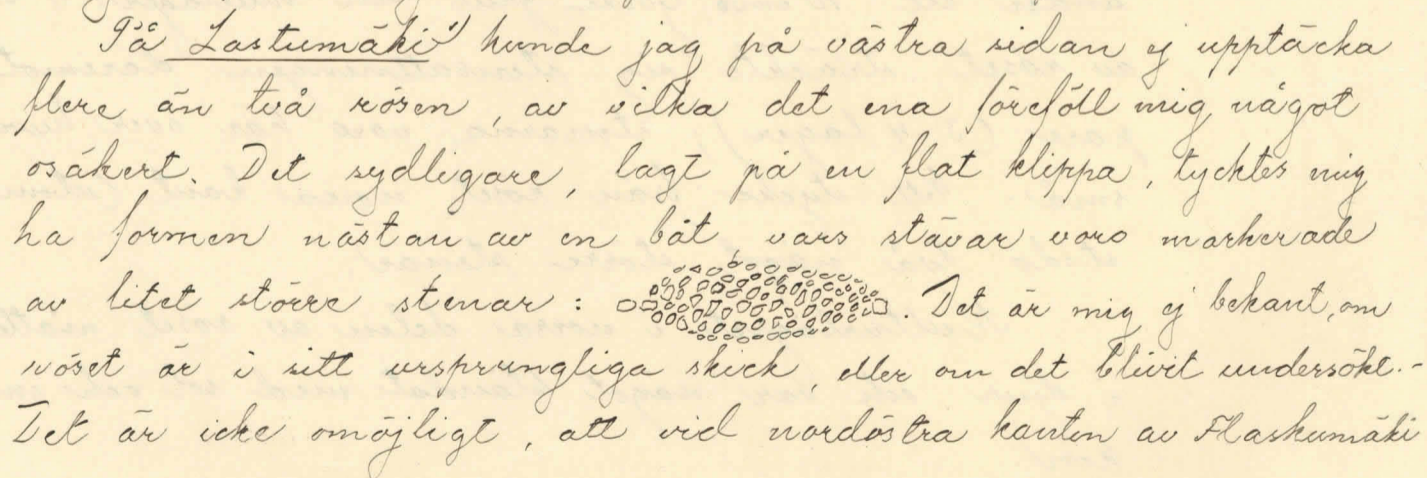 På Lastumäki¹⁾ kunde jag på västra sidan ej upptäcka
flere än två rösen, av vilka det ena föreföll mig något
osäkert. Det sydligare, lagt på en flat klippa, tycktes mig
ha formen nästan av en båt vars stävar voro markerade
av litet större stenar: . Det är mig ej bekant, om
röset är i sitt ursprungliga skick, eller om det blivit undersökt.-
Det är icke omöjligt, att vid nordöstra kanten av Flaskumäki